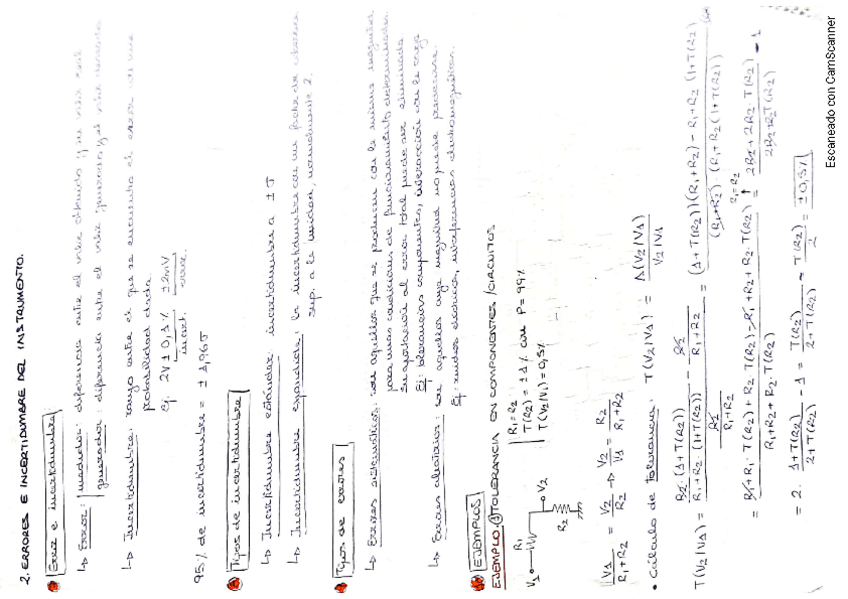 2. ERRORES E INCERTIDUMBRE DEL INSTRUMENTO.
Error e incertidumbre
↳ Error: medidor: diferencia entre el valor obtenido y su valor real
generador: diferencia entre el valor generado y el valor
↳ Incertidumbre: rango entre el que se encuentra el error con una
probabilidad dada.
Ej. 2V ± 0,1% ± 2mV
incert. error.
95% de incertidumbre = ± 1,96 σ
Tipos de incertidumbre
↳ Incertidumbre estándar: incertidumbre a ± σ
↳ Incertidumbre expandida: la incertidumbre con un factor de cobertura
sup. a la unidad, normalmente 2.
Tipos de errores
↳ Errores sistemáticos: son aquellos que se producen con la misma magnitud
para unas condiciones de funcionamiento determinadas.
Su aportación al error total puede ser eliminada
Ej: tolerancias componentes, interacción con la carga
↳ Errores aleatorios: son aquellos cuya magnitud no puede predecirse.
Ej: ruidos eléctricos, interferencias electromagnéticas.
EJEMPLOS
EJEMPLO 1 TOLERANCIA EN COMPONENTES/CIRCUITOS
V1 R1 V2 R2
R1=R2
T(R2) = ±1% con P=99%
T(V2/V1) = 0,5%
V1/(R1+R2) = V2/R2 → V2/V1 = R2/(R1+R2)
• Cálculo de tolerancia: T(V2/V1) = Δ(V2/V1)/(V2/V1)
T(V2/V1) = (R2·(1+T(R2))/(R1+R2·(1+T(R2))) - R2/(R1+R2))/(R2/(R1+R2)) = ((1+T(R2))(R1+R2) - R1+R2(1+T(R2)))/((R1+R2)·(R1+R2(1+T(R2))))
= (R1+R1·T(R2)+R2+R2·T(R2)-R1+R2+R2·T(R2))/(R1+R2+R2·T(R2)) = R1=R2 (2R2+2R2·T(R2))/(2R2+R2T(R2)) - 1
= 2·(1+T(R2))/(2+T(R2)) - 1 = T(R2)/(2+T(R2)) ≈ T(R2)/2 = ±0,5%
Escaneado con CamScanner